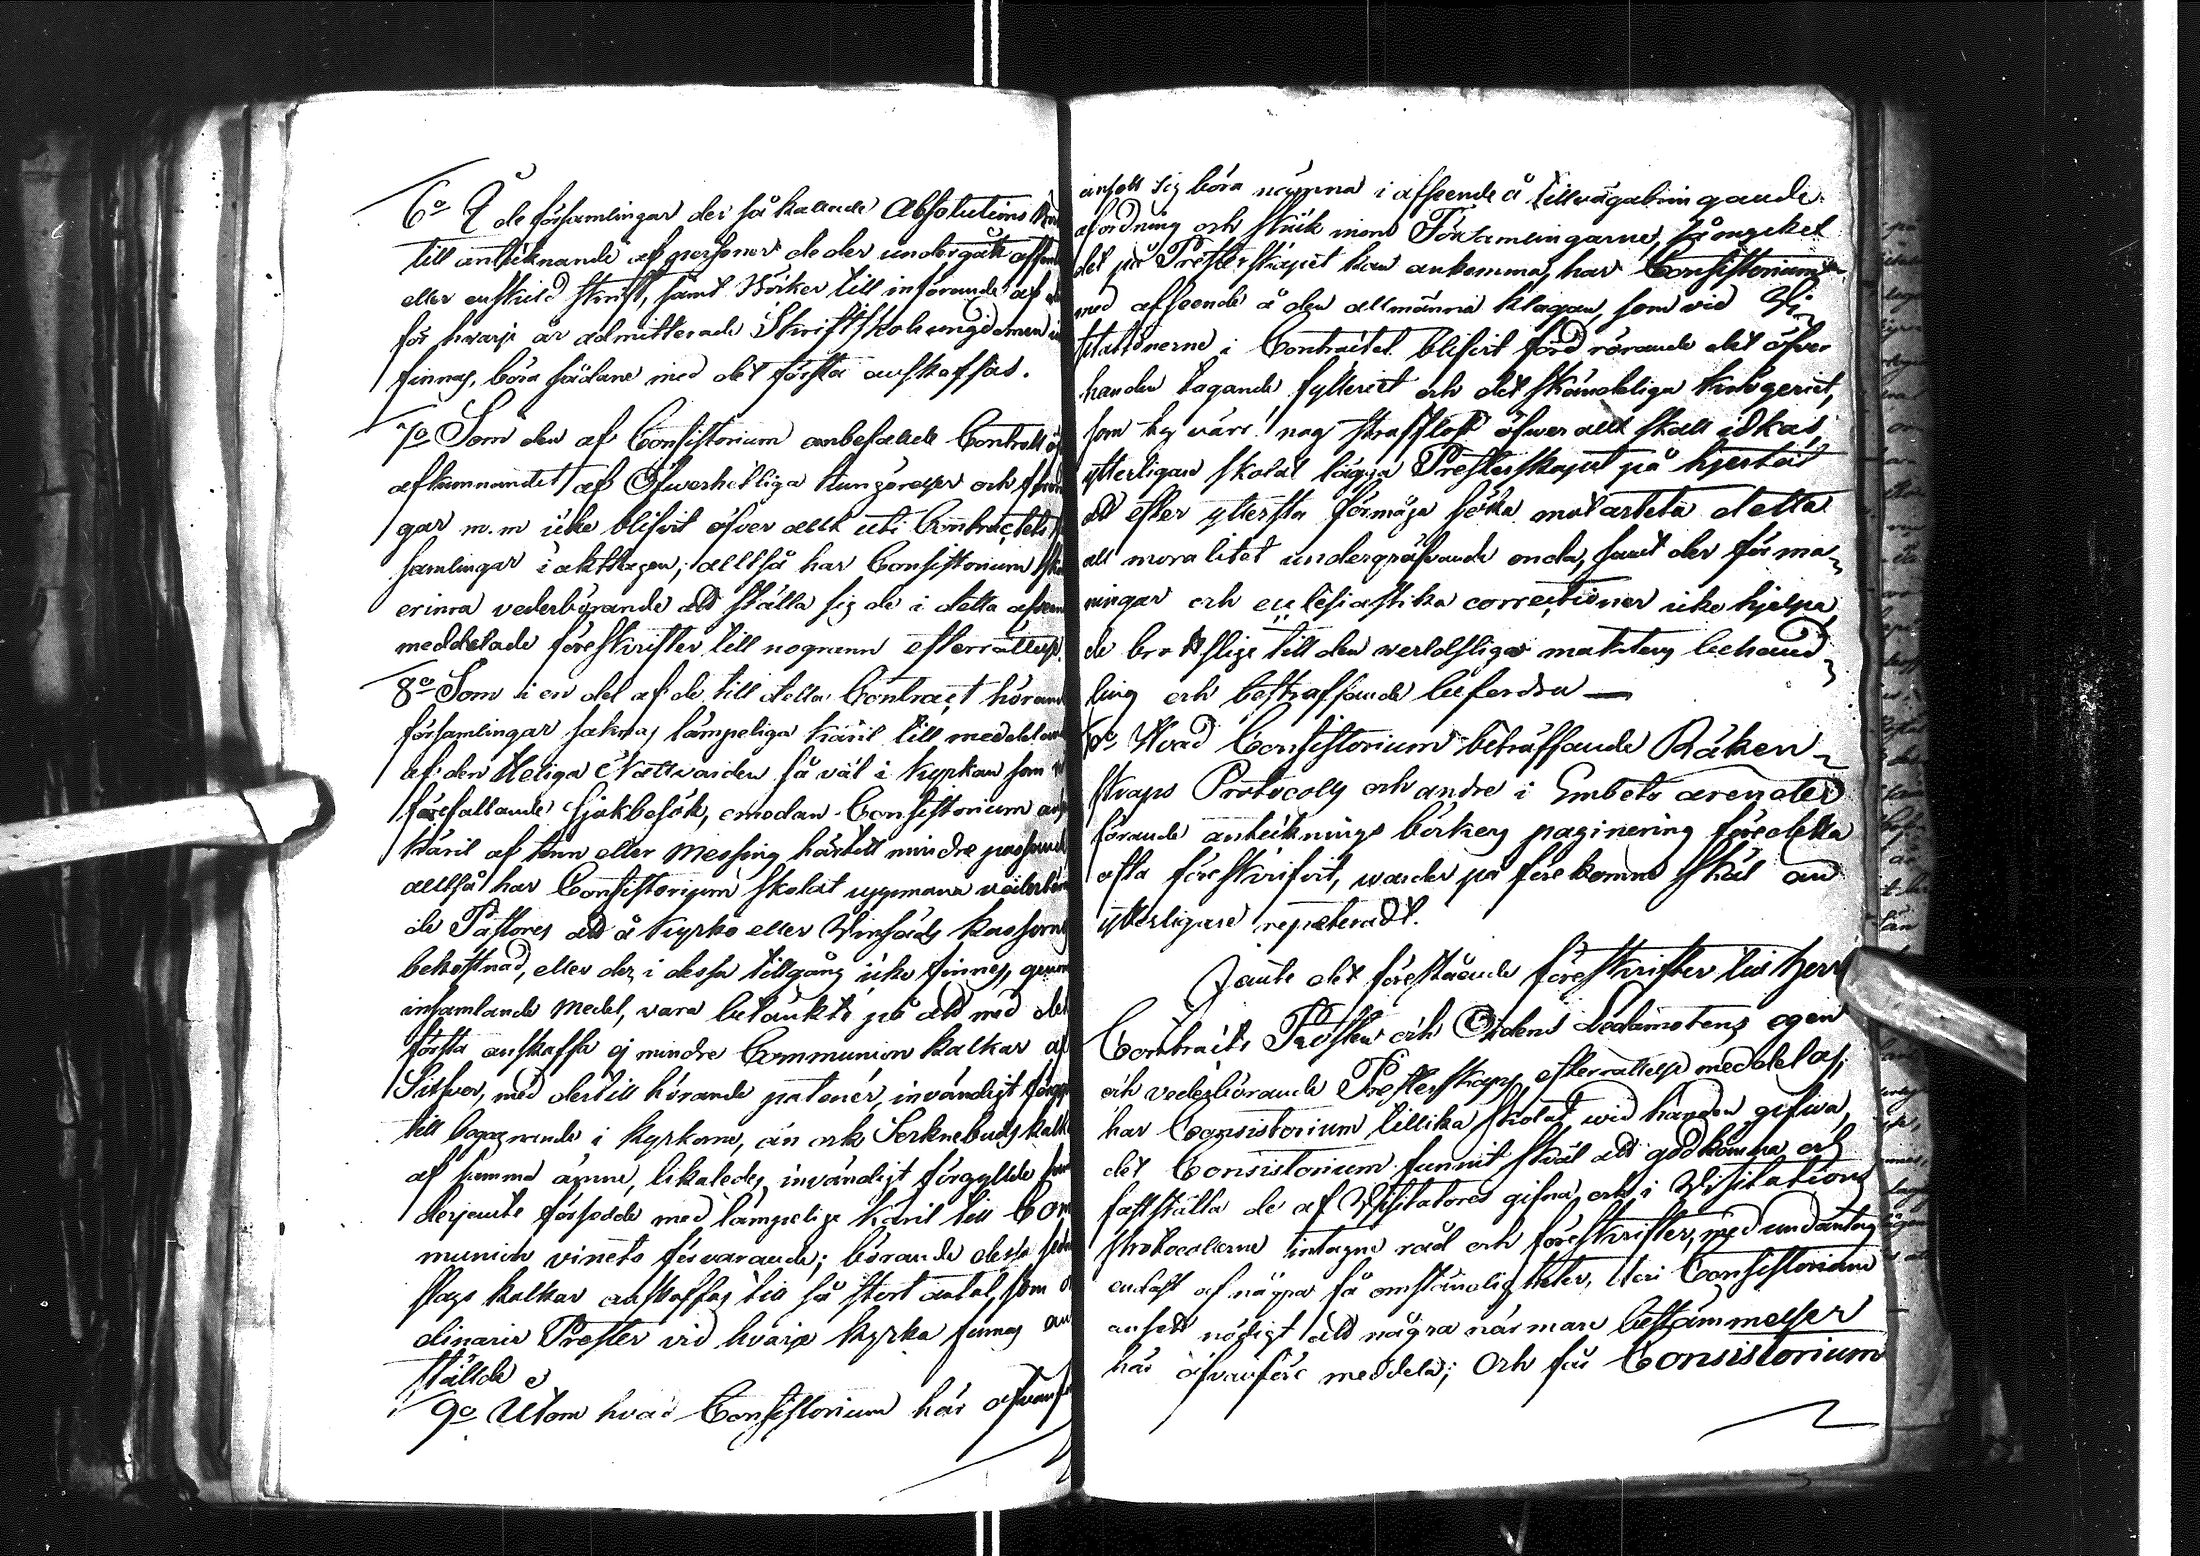 6o I de församlingar der så kallade Absolutions
till antecknande af personer de der undergått
eller enskild skrift, samt Böcker till införande af
för hvarje år admitterade Skriftskoleungdomen
finnas, böra sådane med det första anskaffas.
7o Som den af Consistorium anbefallde Controll
afkunnandet af Öfwerhetliga kungörelser och
gar m.m icke blifvit öfver allt uti Contractets
samlingar iakttagen; alltså har Consistorium
erinra vederbörande att ställa sig de i detta
meddelade föreskrifter till nogrann efterrättelse.
8o Som i en del af de till detta Contract hörande
församlingar saknas lämpeliga käril till meddelande
af den Heliga Nattvarden så väl i kyrkan som
förefallande sjukbesök, emedan Consistorium
käril af tenn eller Messing härtill mindre passande
alltså har Consistorium skolat uppmana
de Pastores att å kyrko eller Vinsäds kassorne
bekostnad, eller der i dessa tillgång icke finnes, genom
insamlande Medel, vara betänkte på att med det
första anskaffa ej mindre Communion kalkar af
Silfver, med dertill hörande patener, invändigt
till begagnande i kyrkorne, än ock Sockenbuds kalkar
af samma ämne, likaledes invändigt förgyllde
derjemte försedde med lämpelige käril till Com
munion vinets förvarande; börande dessa
slags kalkar anskaffas till så stort antal, som
dinarie Prester vid hvarje kyrka finnas an
ställde
9o Utom hvad Consistorium här
ansett sig böra nämna i afseende å tillvägabringande
af ordning och skick inom Församlingarne, så mycket
det på Presterskapet kan ankomma, har Consistorium
med afseende å den allmänna klagan, som vid Vi
sitationerne i Contractet blifvit förd rörande det öfver
handen tagande fylleriet och det skändeliga krögeriet,
som straffløst öfwer allt skall idkas
ytterligare skolat lägga Presterskapet på hjertat
att efter yttersta förmåga söka motarbeta detta
all moralitet undergräfvande onda, samt der förma
ningar och ecclesiastika correctioner icke hjelpa,
de brottslige till den verldsliga maktens behand
ling och bestraffande befordra —
10o Hvad Consistorium beträffande Räken
skaps Protocolls och andre i Embets ärenden
förande antecknings böckers paginering före detta
ofta föreskrifvit, warder på förekomne skäl än
ytterligare repeteradt.
Jemte det förestående föreskrifter till Herr
Contracts Prosten och Ordens Ledamotens egen
och vederbörande Presterskaps efterrättelse meddelas,
har Consistorium tillika skolat wid handen gifwa,
det Consistorium funnit skäl att godkänna och
fastställa de af Visitatores gifna, och i Visitations
protocollerne intagne råd och föreskrifter, med undantag
endast af några få omständigheter, deri Consistorium
ansett nödigt att några närmare bestämmelser
här ofvanföre meddela; Och får Consistorium